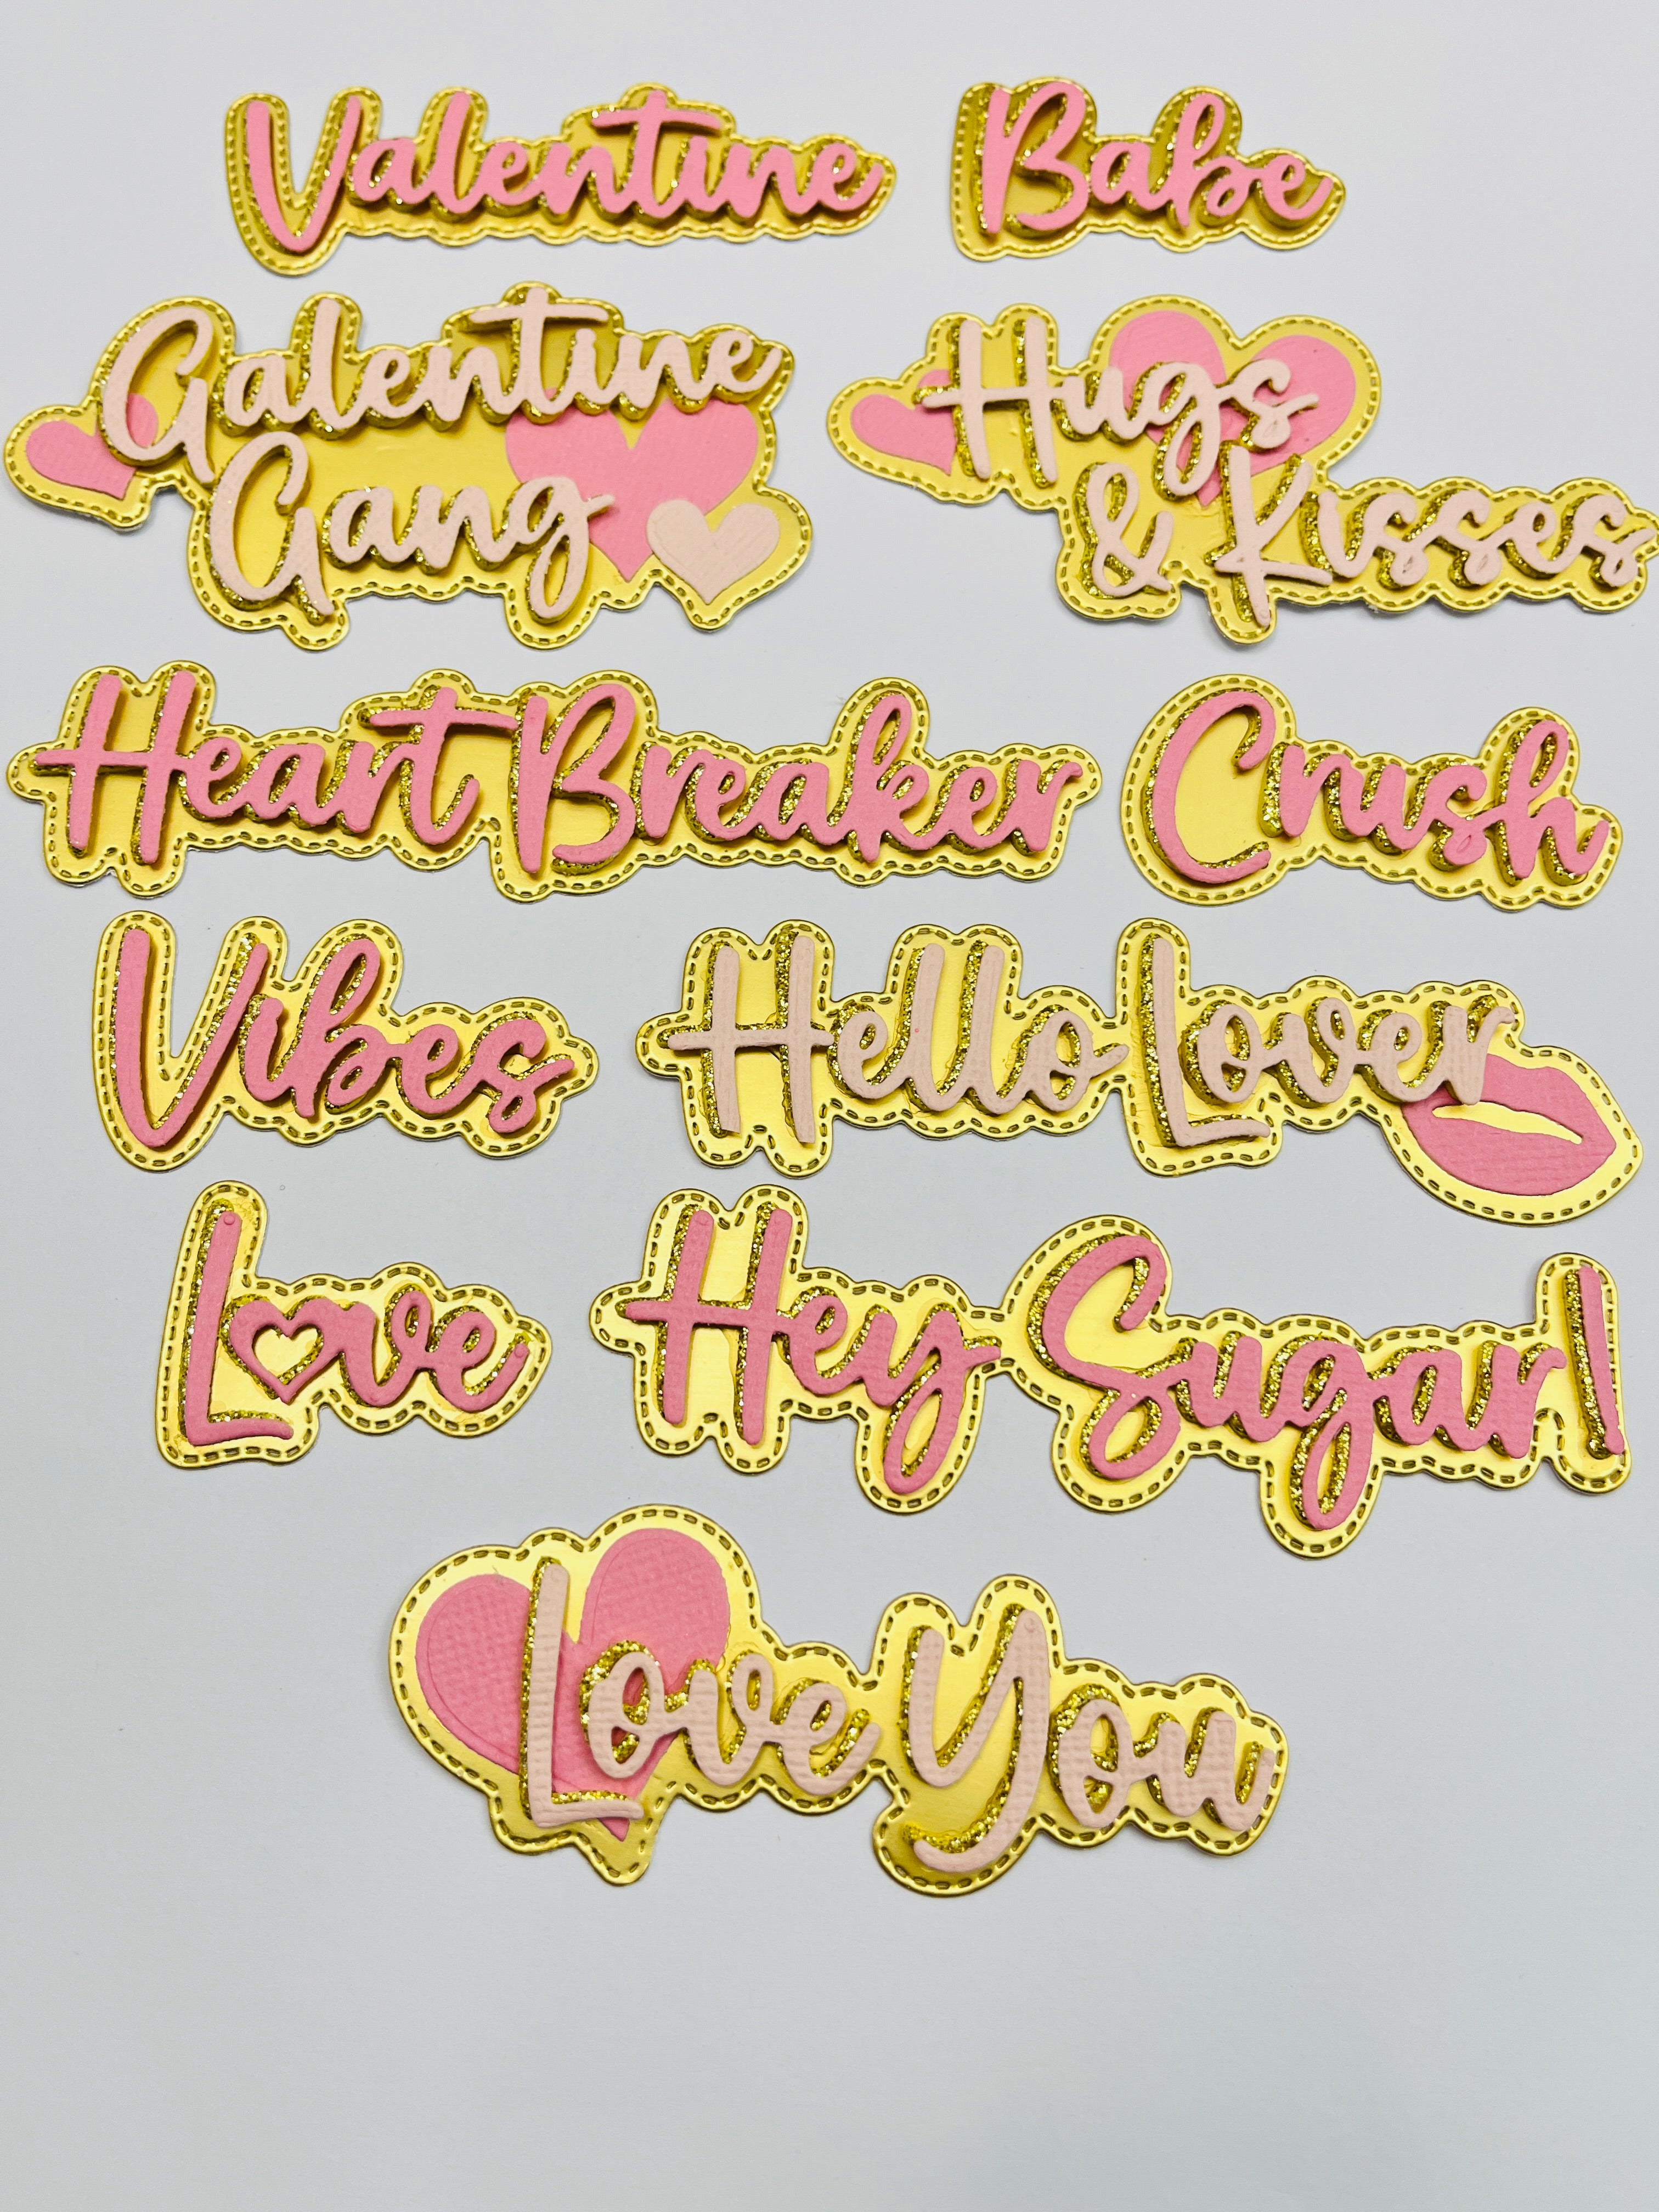 Valentine
Babe
Galentine
Gang
Hugs
& Kisses
Heart Breaker
Crush
Vibes
Hello Lover
Love
Hey Sugar!
Love You